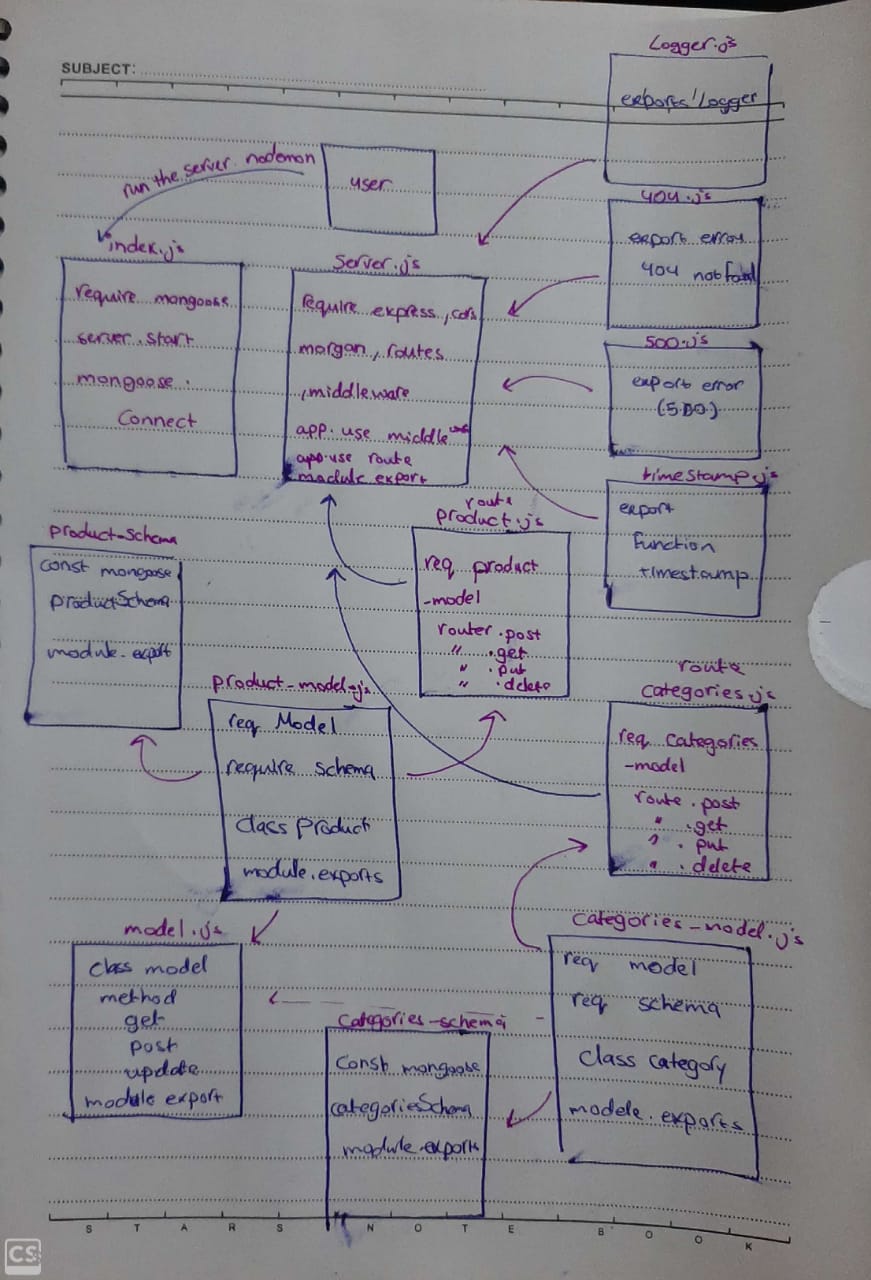 SUBJECT:
Logger.js
exports logger
run the server nodemon
user
404.js
export error
404 not found
index.js
require mongoose
server.start
mongoose.
Connect
Server.js
require express, cors
morgan, routes
, middleware
app.use middle
app.use route
module export
500.js
export error
(500)
timestamp.js
export
function
timestamp
product-Schema
const mongoose
productSchema
module.export
route
product.js
req product
-model
router.post
" .get
" .put
" .delete
product-model.js
req Model
require schema
class product
module.exports
route
categories.js
req categories
-model
route.post
" .get
" .put
" .delete
model.js
class model
method
get
post
update
module export
categories-schema
const mongoose
categoriesSchema
module.exports
categories-model.js
req model
req schema
class category
modele.exports
S T A R S N O T E B O O K
CS